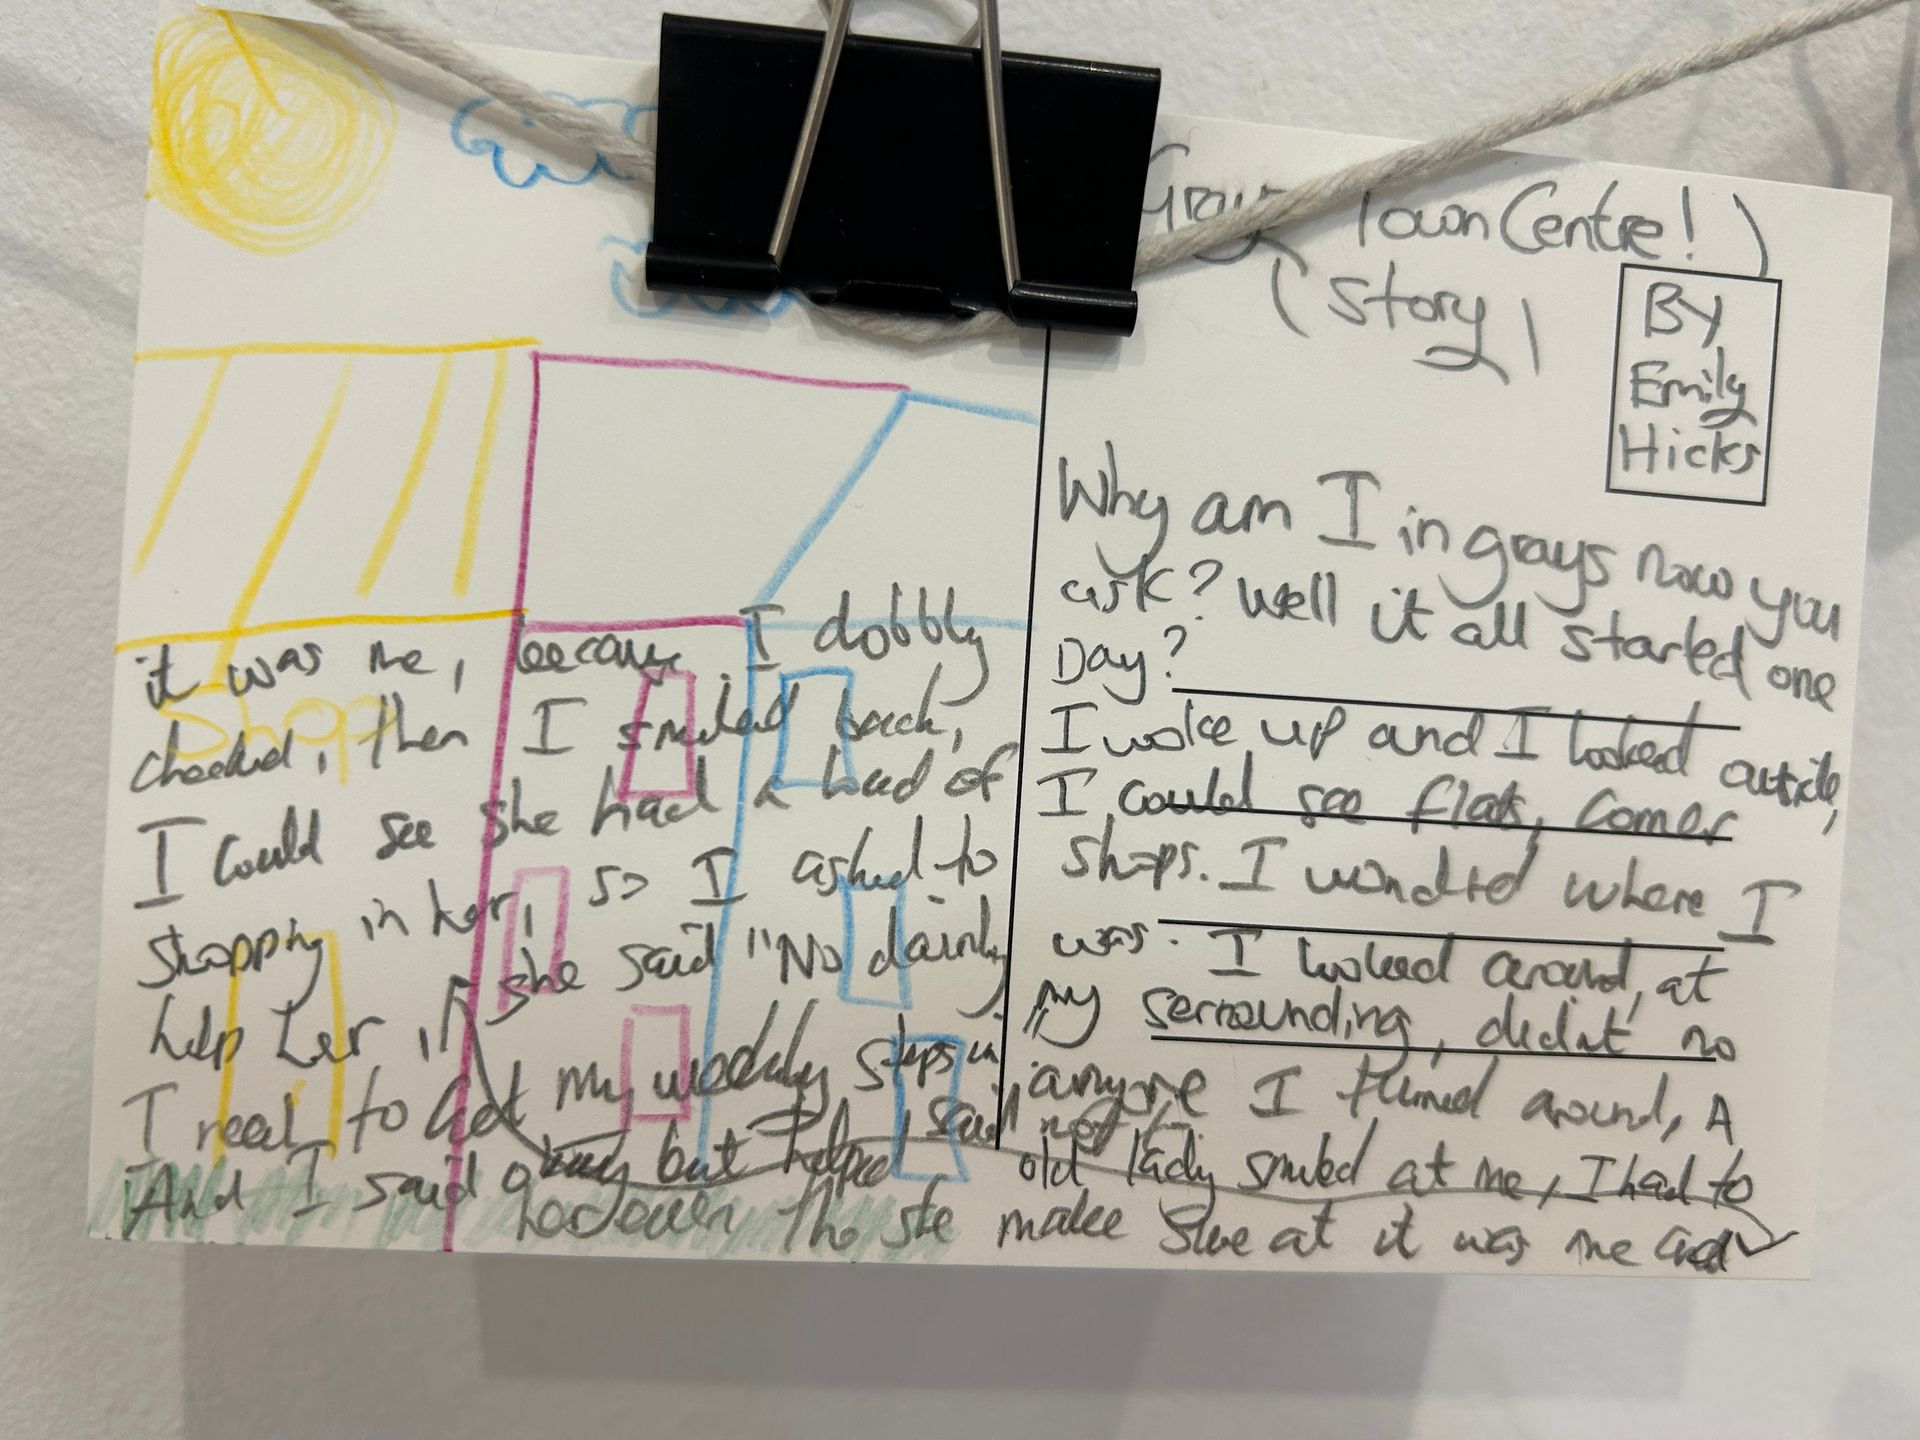 Grays Town Centre!
(Story)
By
Emily
Hicks
Why am I in grays now you
ask? Well it all started one
Day?
I woke up and I looked outside,
I could see flats, corner
shops. I wondred where I
was. I looked around, at
my serrounding, didn't no
anyone I turned around, A
old lady smiled at me, I had to
make sure at it was me and
it was me, because I dobbly
checked, then I smiled back,
I could see she had a load of
shopping in her, so I asked to
help her, she said "No dairly
I need to Get my weekly steps in
And I said okay but helped
her even tho she said not to
Shop